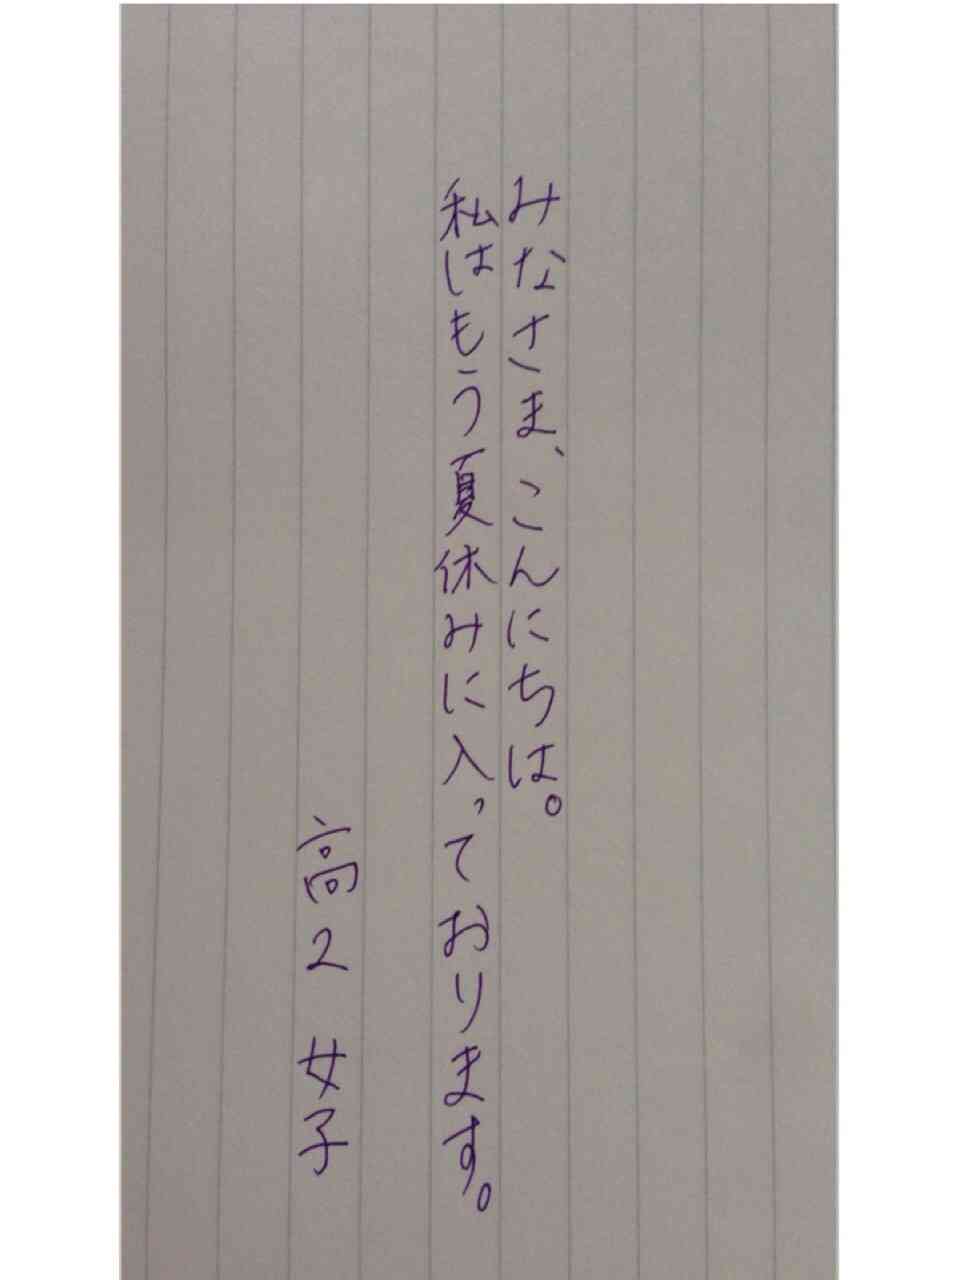 みなさま、こんにちは。
私はもう夏休みに入っております。
高2 女子